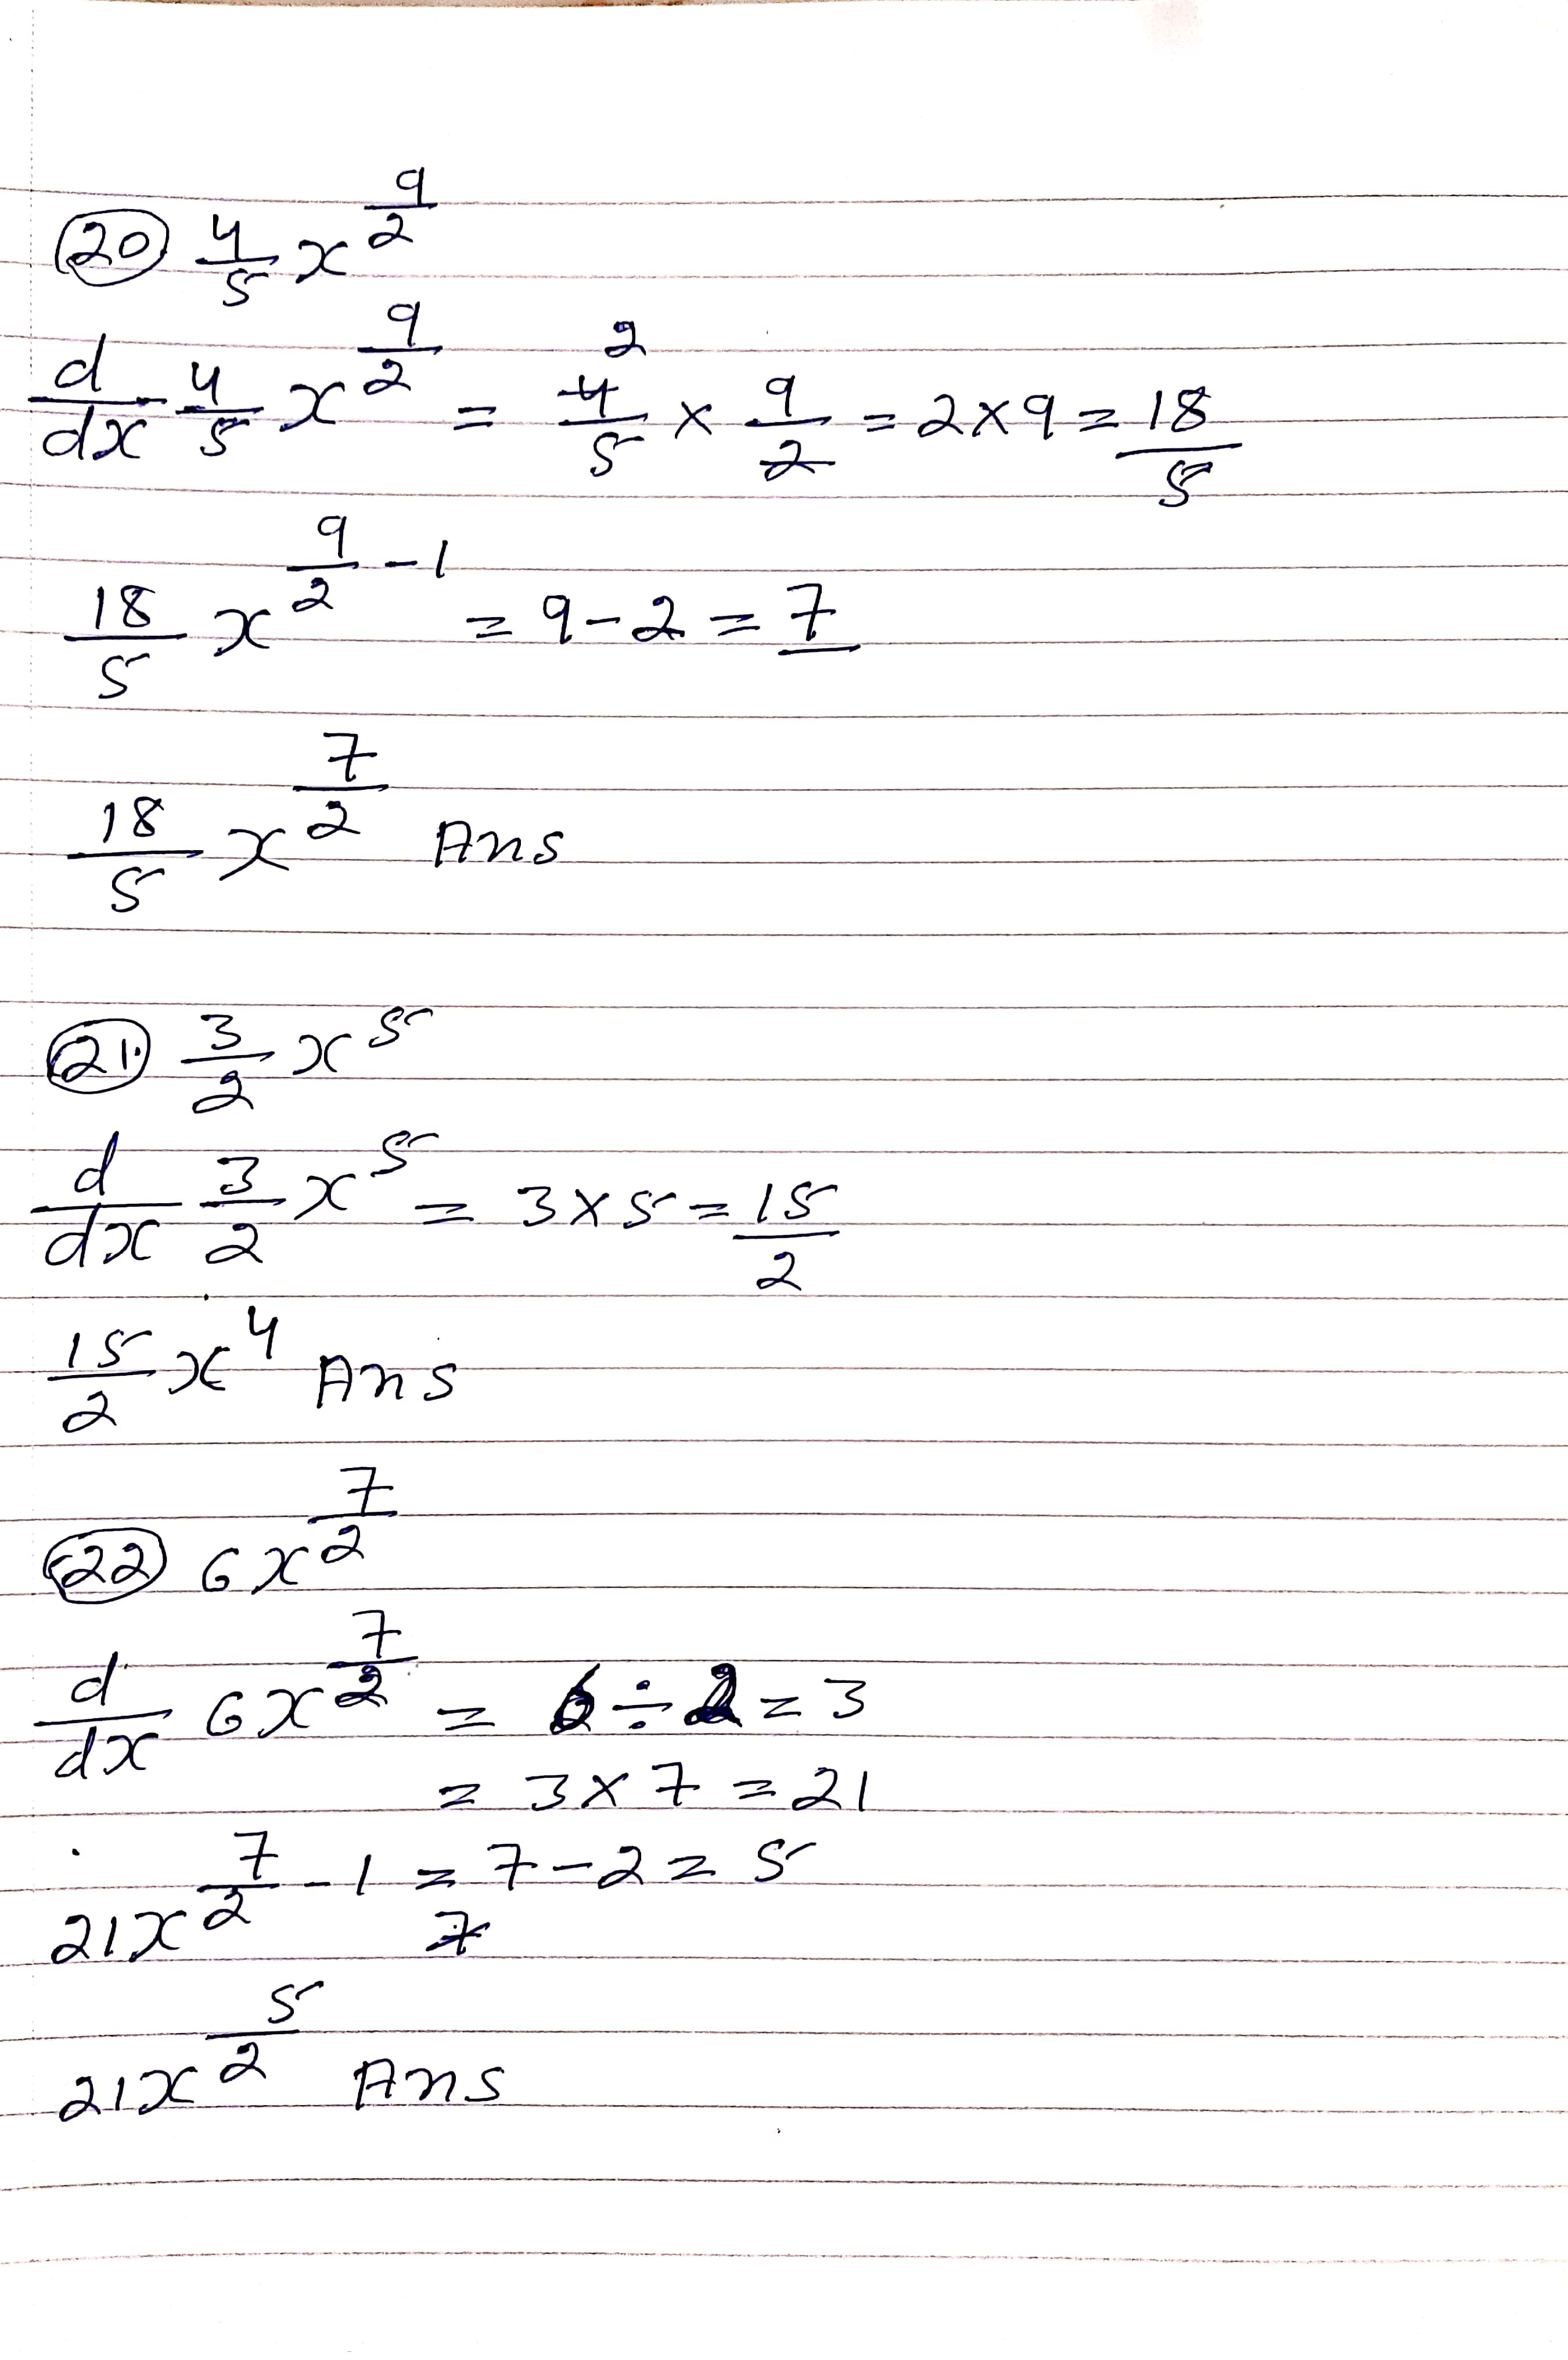 (20) 4/5 x^(9/2)
d/dx 4/5 x^(9/2) = 4/5 × 9/2 = 2×9 = 18/5
2
18/5 x^(9/2 - 1) = 9-2 = 7
18/5 x^(7/2) Ans
(21) 3/2 x^5
d/dx 3/2 x^5 = 3×5 = 15/2
15/2 x^4 Ans
(22) 6x^(7/2)
d/dx 6x^(7/2) = 6÷2 = 3
= 3×7 = 21
21x^(7/2 - 1) = 7-2 = 5
7
21x^(5/2) Ans